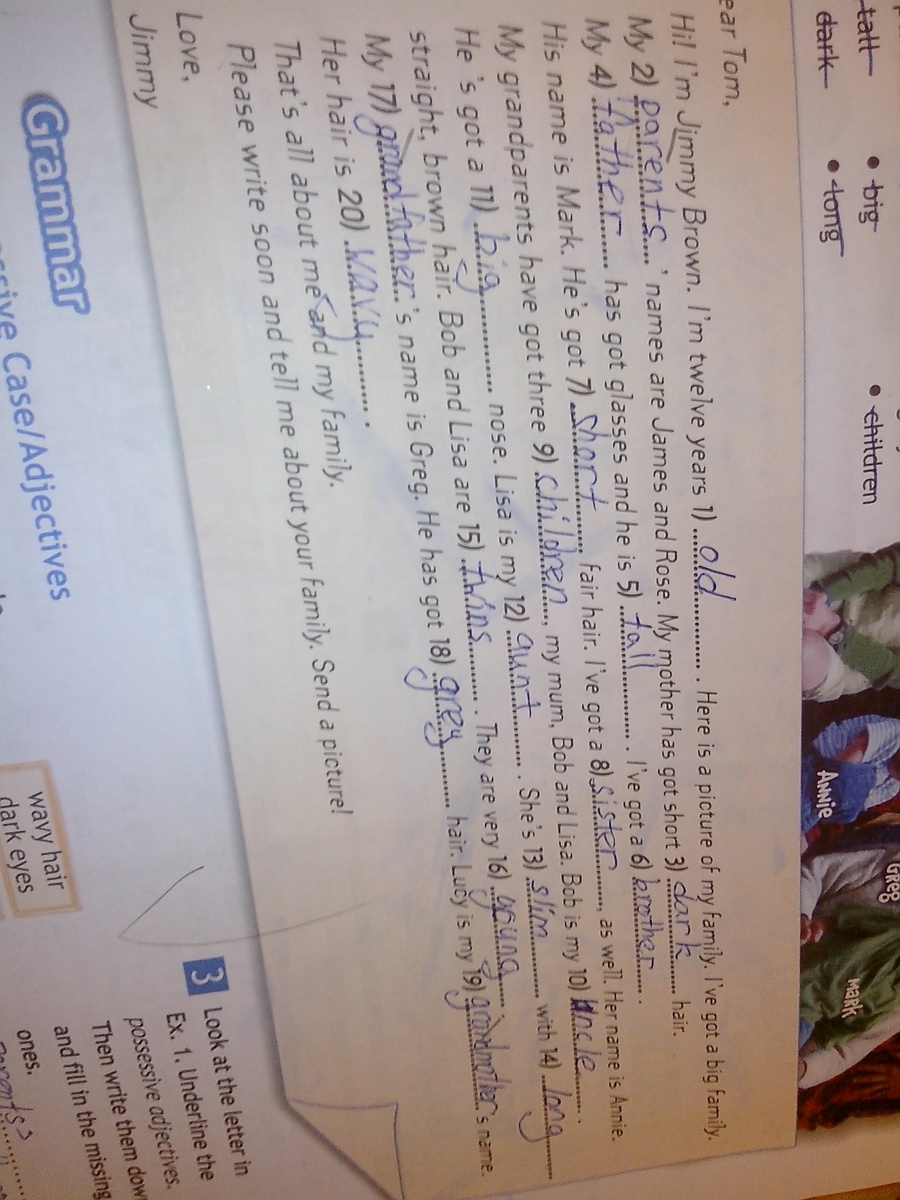 tall • big • children
dark • long
ANNie
GReg
MARK
ear Tom,
Hi! I'm Jimmy Brown. I'm twelve years 1) old. Here is a picture of my family. I've got a big family.
My 2) parents' names are James and Rose. My mother has got short 3) dark hair.
My 4) father has got glasses and he is 5) tall. I've got a 6) brother.
His name is Mark. He's got 7) short fair hair. I've got a 8) sister, as well. Her name is Annie.
My grandparents have got three 9) children, my mum, Bob and Lisa. Bob is my 10) uncle.
He's got a 11) big nose. Lisa is my 12) aunt. She's 13) slim with 14) long
straight, brown hair. Bob and Lisa are 15) twins. They are very 16) young.
My 17) grandfather's name is Greg. He has got 18) grey hair. Lucy is my 19) grandmother's name.
Her hair is 20) wavy.
That's all about me and my family.
Please write soon and tell me about your family. Send a picture!
Love,
Jimmy
Grammar
ssive Case/Adjectives
wavy hair
dark eyes
3 Look at the letter in
Ex. 1. Underline the
possessive adjectives.
Then write them dow
and fill in the missing
ones.